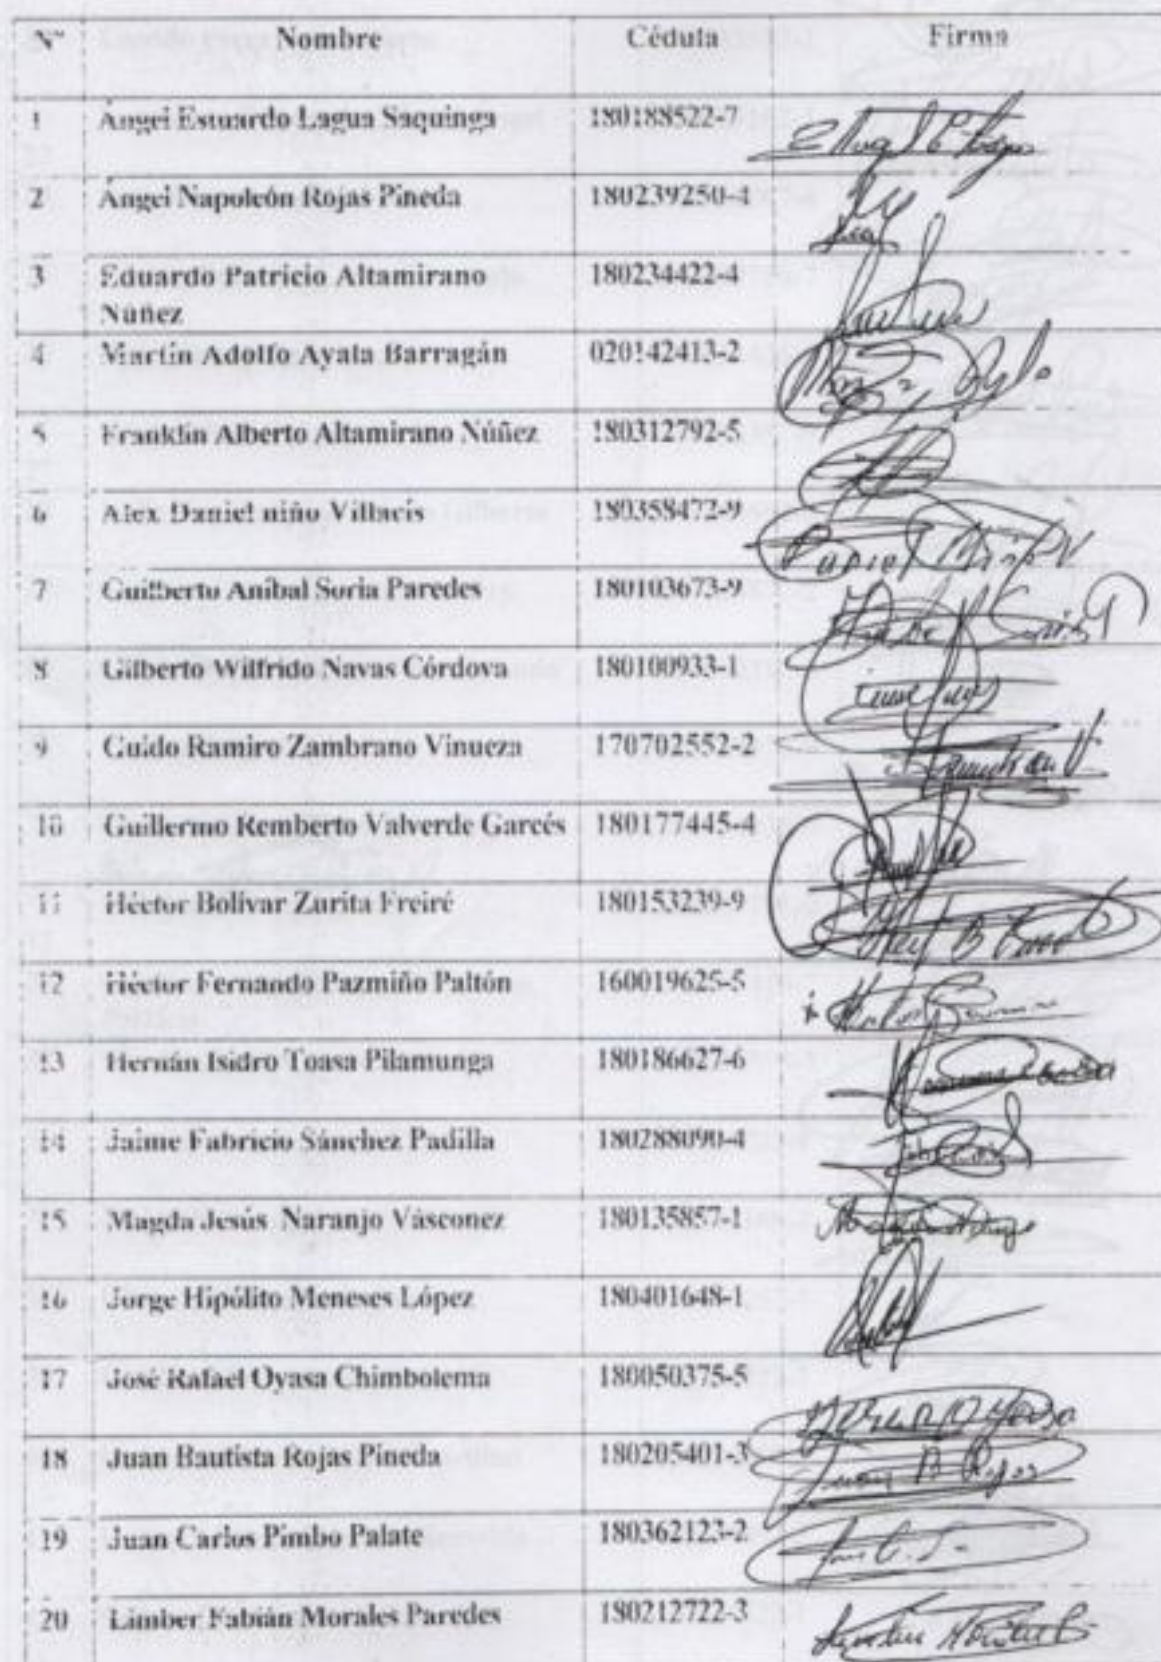 N° Nombre Cédula Firma
1 Ángel Estuardo Lagua Saquinga 180188522-7
2 Ángel Napoleón Rojas Pineda 180239250-4
3 Eduardo Patricio Altamirano 180234422-4
Núñez
4 Martín Adolfo Ayala Barragán 020142413-2
5 Franklin Alberto Altamirano Núñez 180312792-5
6 Alex Daniel niño Villacís 180358472-9
Daniel Niño V
7 Guilberto Aníbal Soria Paredes 180103673-9
8 Gilberto Wilfrido Navas Córdova 180100933-1
9 Guido Ramiro Zambrano Vinueza 170702552-2
10 Guillermo Remberto Valverde Garcés 180177445-4
11 Héctor Bolívar Zurita Freiré 180153239-9
12 Héctor Fernando Pazmiño Paltón 160019625-5
13 Hernán Isidro Toasa Pilamunga 180186627-6
14 Jaime Fabricio Sánchez Padilla 180288090-4
15 Magda Jesús Naranjo Vásconez 180135857-1
16 Jorge Hipólito Meneses López 180401648-1
17 José Rafael Oyasa Chimbolema 180050375-5
18 Juan Bautista Rojas Pineda 180205401-3
Juan B Rojas
19 Juan Carlos Pimbo Palate 180362123-2
20 Limber Fabián Morales Paredes 180212722-3